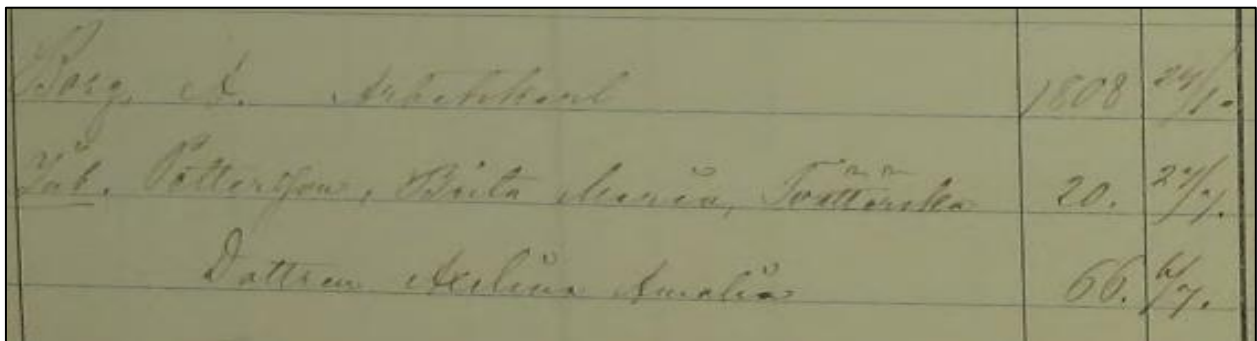 Borg, A. Arbetskarl 1808 24/1.
Inh. Pettersson, Brita Maria, Tvätterska 20. 27/7.
Dottren Axelina Amalia 66. 6/7.